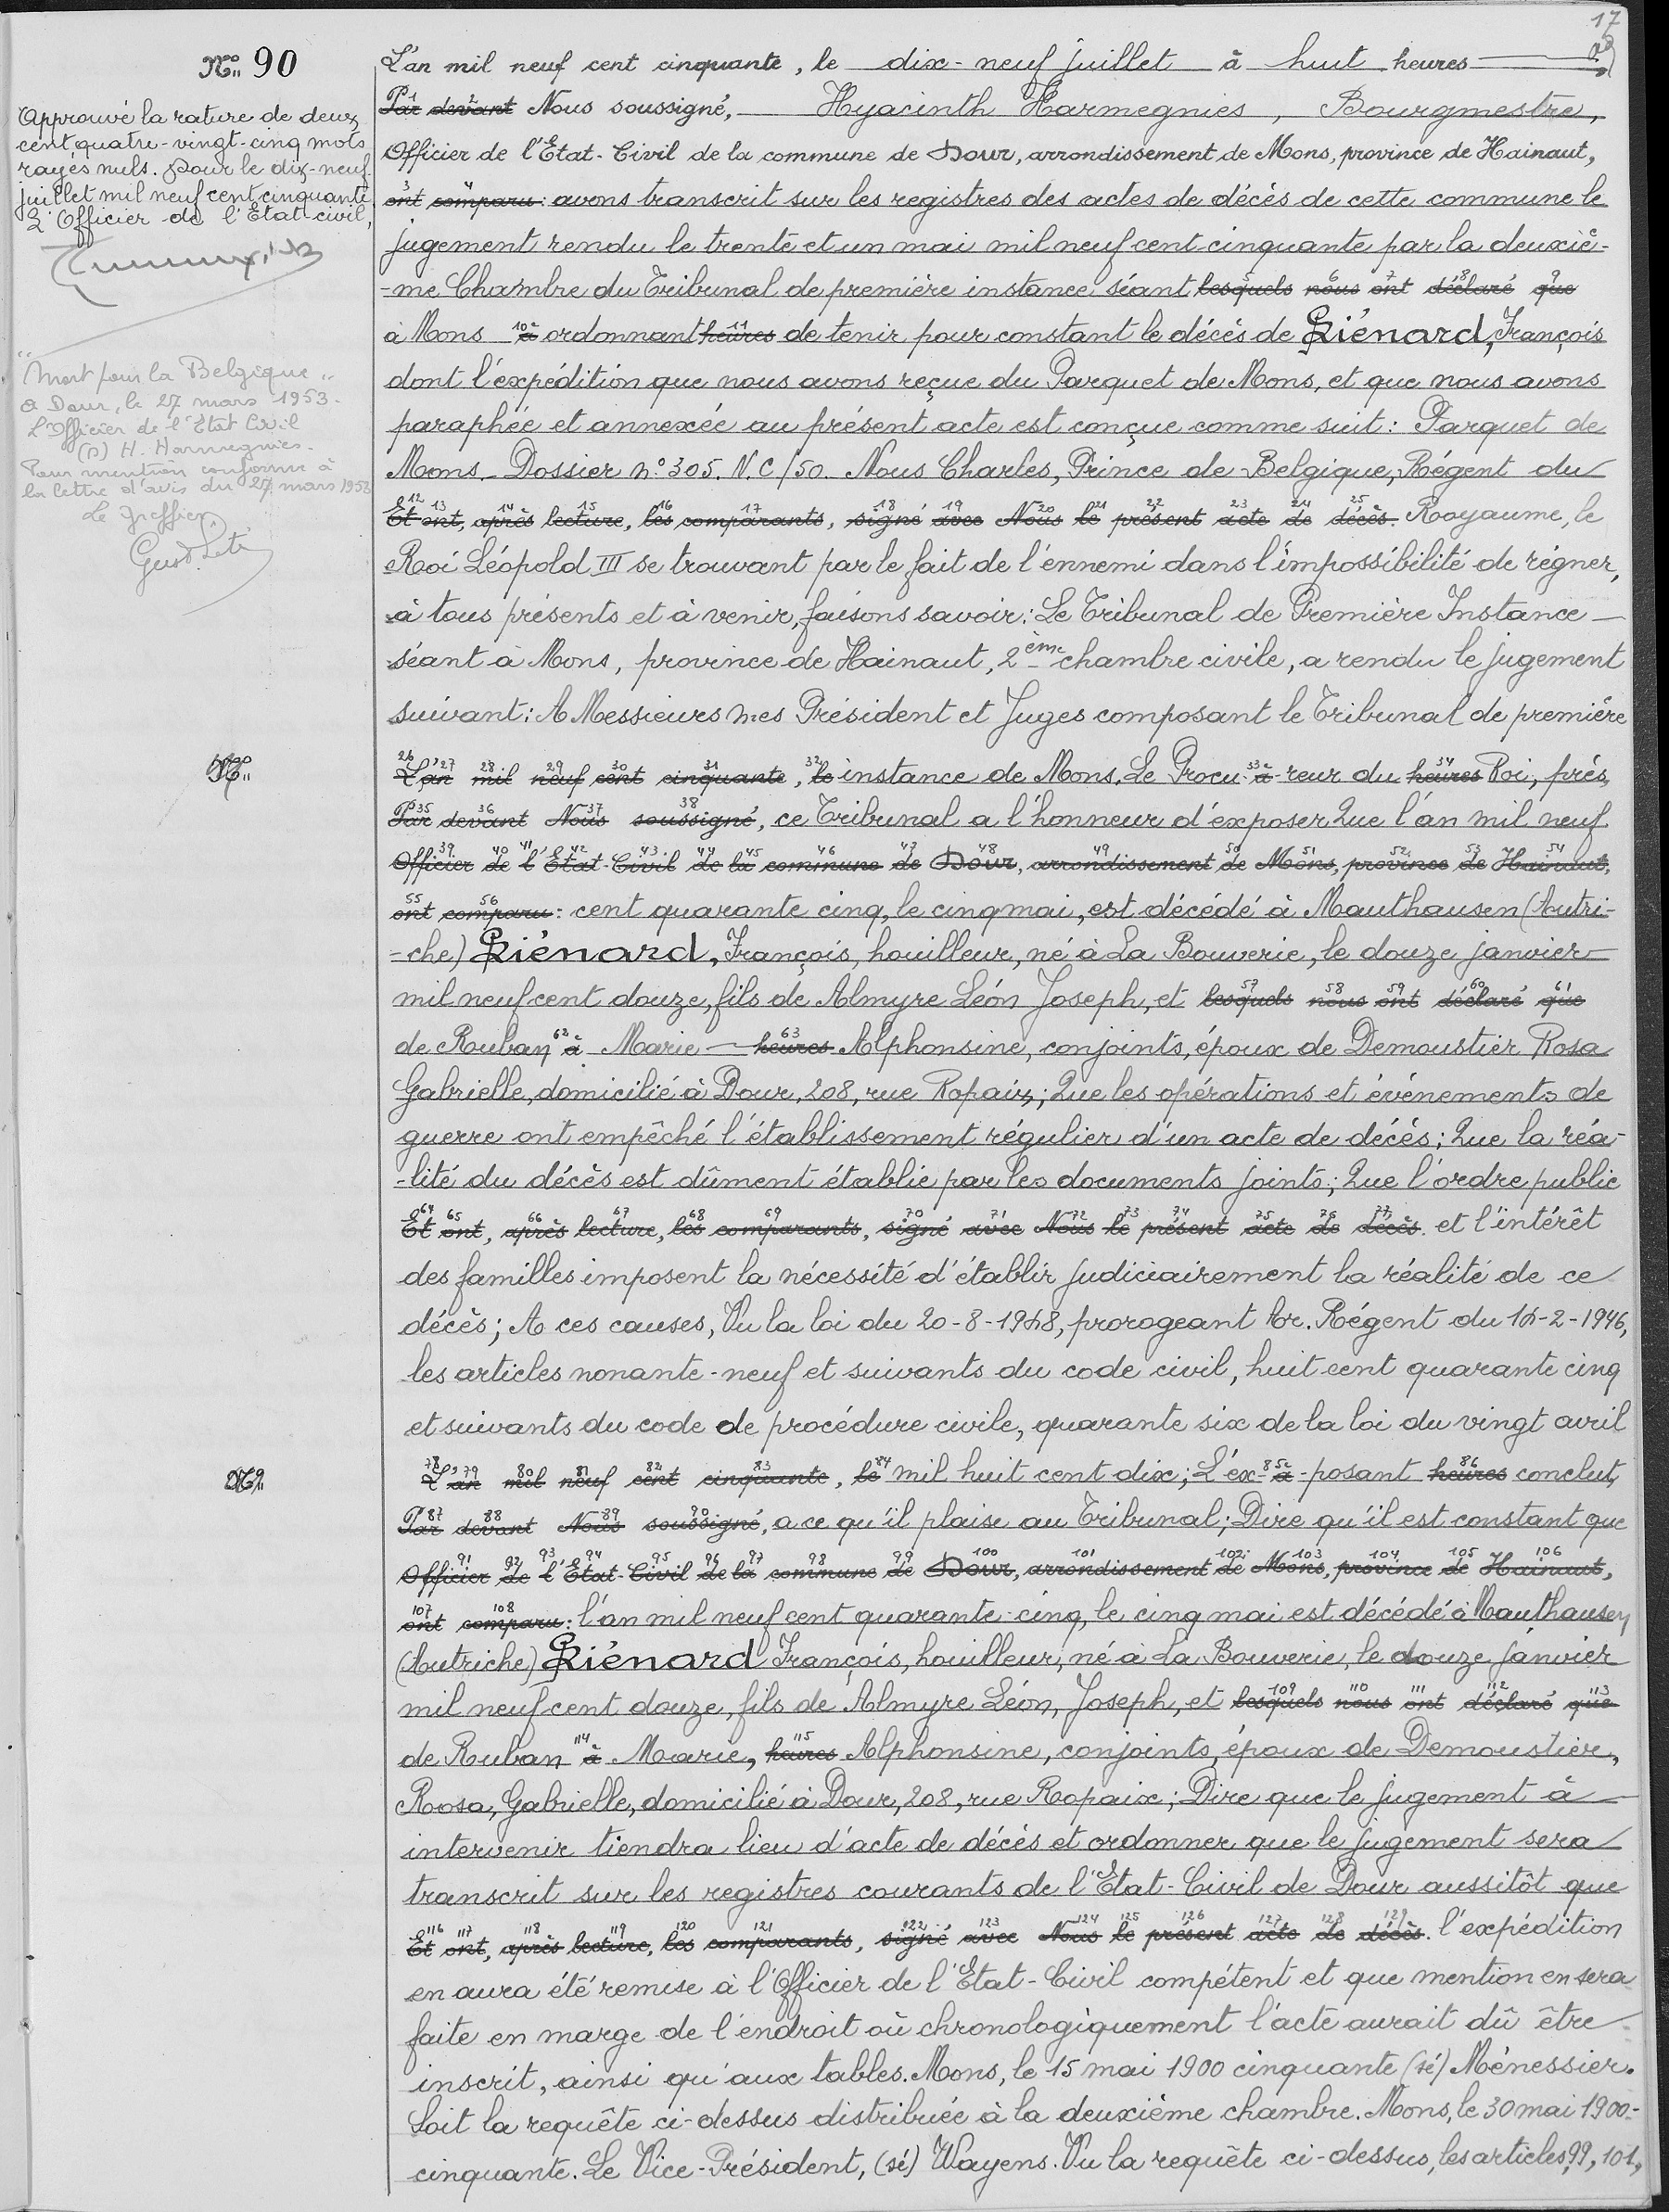 17
N° 90
Approuvé la rature de deux
cent quatre-vingt-cinq mots
rayés nuls. Pour le dix-neuf
juillet mil neuf cent cinquante
L'Officier de l'Etat-civil,
"Mort pour la Belgique"
à Dour, le 27 mars 1953.
L'Officier de l'Etat Civil
(s) H. Harmegnies.
Pour mention conforme à
la lettre d'avis du 27 mars 1953
Le Greffier,
L'an mil neuf cent cinquante, le dix-neuf juillet à huit heures
Par devant Nous soussigné, Hyacinth Harmegnies, Bourgmestre,
Officier de l'Etat-Civil de la commune de Dour, arrondissement de Mons, province de Hainaut,
ont comparu: avons transcrit sur les registres des actes de décès de cette commune le
jugement rendu le trente et un mai mil neuf cent cinquante par la deuxiè-
-me Chambre du Tribunal de première instance séant lesquels nous ont déclaré que
à Mons à ordonnant heures de tenir pour constant le décès de Liénard, François
dont l'expédition que nous avons reçue du Parquet de Mons, et que nous avons
paraphée et annexée au présent acte est conçue comme suit: Parquet de
Mons. Dossier n° 305. N.C/50. Nous Charles, Prince de Belgique, Régent du
Et ont, après lecture, les comparants, signé avec Nous le présent acte de décès. Royaume, le
Roi Léopold III se trouvant par le fait de l'ennemi dans l'impossibilité de régner,
à tous présents et à venir, faisons savoir: Le Tribunal de Première Instance
séant à Mons, province de Hainaut, 2ème chambre civile, a rendu le jugement
suivant: A Messieurs mes Président et Juges composant le Tribunal de première
N°
L'an mil neuf cent cinquante, le instance de Mons, Le Procu- à -reur du heures Roi, près,
Par devant Nous soussigné, ce Tribunal a l'honneur d'exposer Que l'an mil neuf
Officier de l'Etat-Civil de la commune de Dour, arrondissement de Mons, province de Hainaut,
ont comparu: cent quarante cinq, le cinq mai, est décédé à Mauthausen (Autri-
-che) Liénard, François, houilleur, né à La Bouverie, le douze janvier
mil neuf cent douze, fils de Almyre Léon Joseph, et lesquels nous ont déclaré que
de Ruban à Marie heures Alphonsine, conjoints, époux de Demoustier Rosa
Gabrielle, domicilié à Dour, 208, rue Ropaix; Que les opérations et événements de
guerre ont empêché l'établissement régulier d'un acte de décès; Que la réa-
-lité du décès est dûment établie par les documents joints; Que l'ordre public
Et ont, après lecture, les comparants, signé avec Nous le présent acte de décès. et l'intérêt
des familles imposent la nécessité d'établir judiciairement la réalité de ce
décès; A ces causes, Vu la loi du 20-8-1948, prorogeant Arr. Régent du 14-2-1946,
les articles nonante-neuf et suivants du code civil, huit cent quarante cinq
et suivants du code de procédure civile, quarante six de la loi du vingt avril
N°
L'an mil neuf cent cinquante, le mil huit cent dix; L'ex- à -posant heures conclut,
Par devant Nous soussigné, a ce qu'il plaise au Tribunal; Dire qu'il est constant que
Officier de l'Etat-Civil de la commune de Dour, arrondissement de Mons, province de Hainaut,
ont comparu: l'an mil neuf cent quarante-cinq, le cinq mai est décédé à Mauthausen
(Autriche) Liénard François, houilleur, né à La Bouverie, le douze janvier
mil neuf cent douze, fils de Almyre Léon, Joseph, et lesquels nous ont déclaré que
de Ruban à Marie, heures Alphonsine, conjoints, époux de Demoustier,
Rosa, Gabrielle, domicilié à Dour, 208, rue Ropaix; Dire que le jugement à
intervenir tiendra lieu d'acte de décès et ordonner que le jugement sera
transcrit sur les registres courants de l'Etat-Civil de Dour aussitôt que
Et ont, après lecture, les comparants, signé avec Nous le présent acte de décès. l'expédition
en aura été remise à l'Officier de l'Etat-Civil compétent et que mention en sera
faite en marge de l'endroit où chronologiquement l'acte aurait dû être
inscrit, ainsi qu'aux tables. Mons, le 15 mai 1900 cinquante (sé) Ménessier.
Soit la requête ci-dessus distribuée à la deuxième chambre. Mons, le 30 mai 1900-
cinquante. Le Vice-Président, (sé) Wayens. Vu la requête ci-dessus, les articles 99, 101,